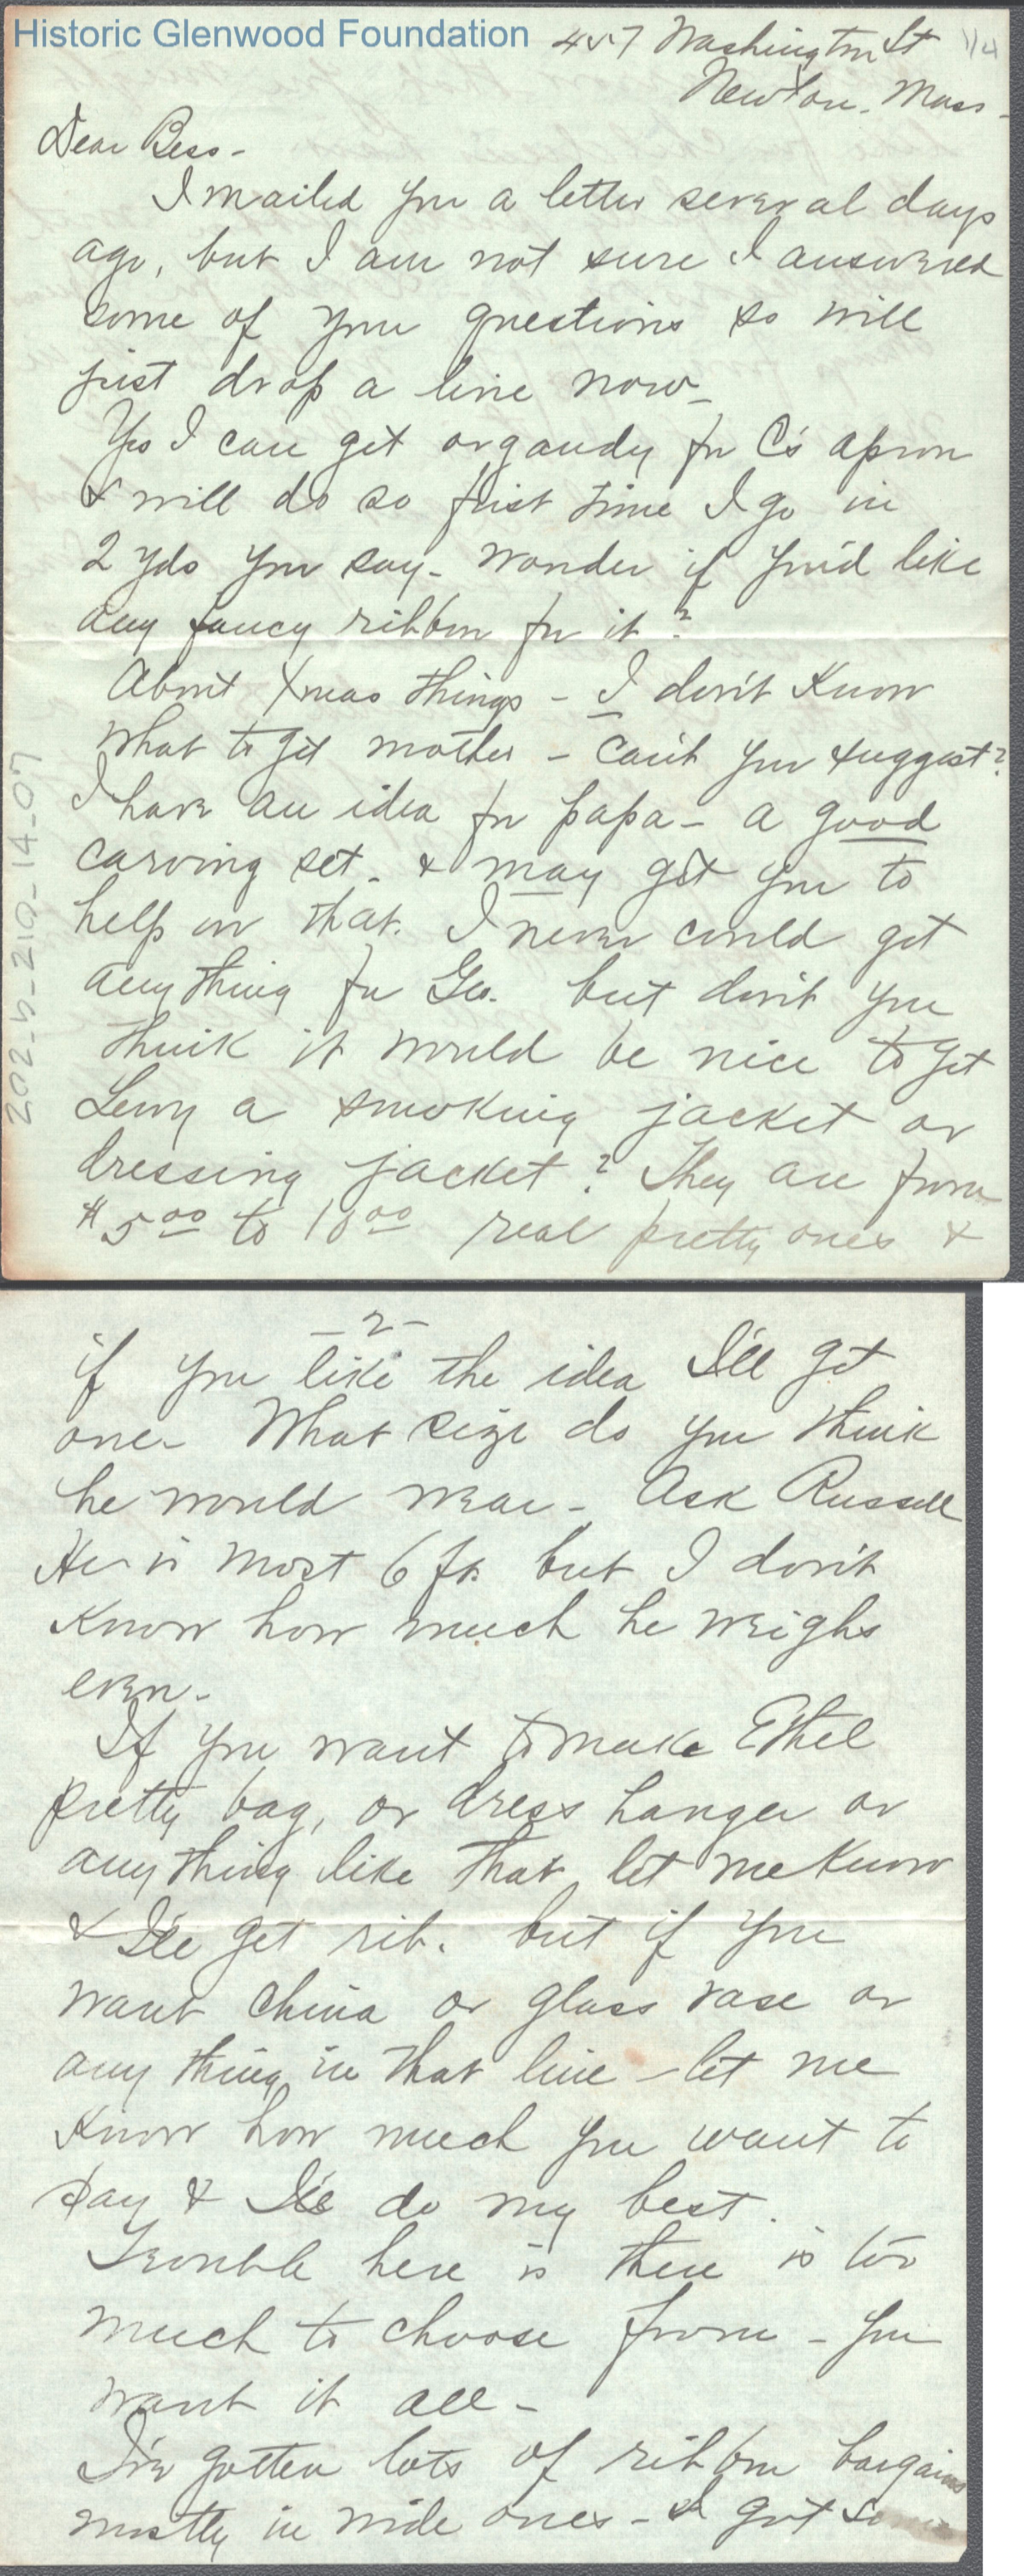 Historic Glenwood Foundation
457 Washington St 1/4
Newton. Mass-
Dear Bess-
I mailed you a letter several days
ago, but I am not sure I answered
some of your questions so will
just drop a line now-
Yes I can get organdy for C's apron
& will do so first time I go in
2 yds you say- wonder if you'd like
any fancy ribbon for it?
About Xmas things - I don't know
what to get mother - can't you suggest?
I have an idea for papa - a good
carving set. & may get you to
help on that. I never could get
anything for Geo. but don't you
think it would be nice to get
Leroy a smoking jacket or
dressing jacket? They are from
$5.00 to 10.00 real pretty ones &
202-5-210-14-07
-2-
if you like the idea I'll get
one- What size do you think
he would wear - Ask Russell
He is most 6 ft. but I don't
know how much he weighs
even-
If you want to make Ethel
pretty bag, or dress hanger or
anything like that let me know
& I'll get rib. but if you
want china or glass vase or
any thing in that line - let me
know how much you want to
pay & I'll do my best.
Trouble here is there is too
much to choose from - you
want it all -
I've gotten lots of ribbon bargains
mostly in wide ones - I got